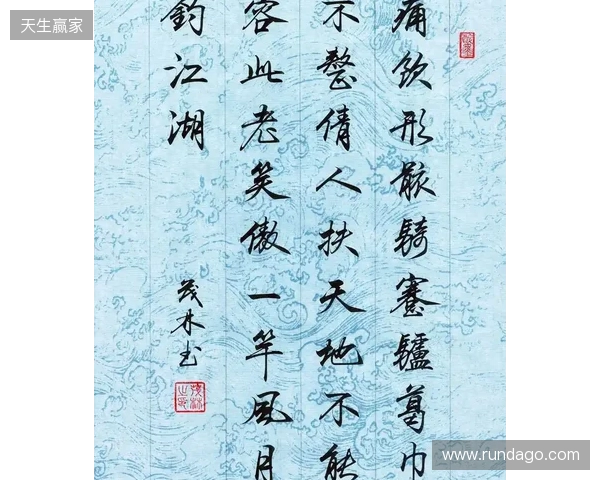 天生赢家
痛飲形骸騎蹇驢葛巾
不整倩人扶天地不能
容此老笑傲一竿風月
釣江湖
茂林书
www.rundago.com